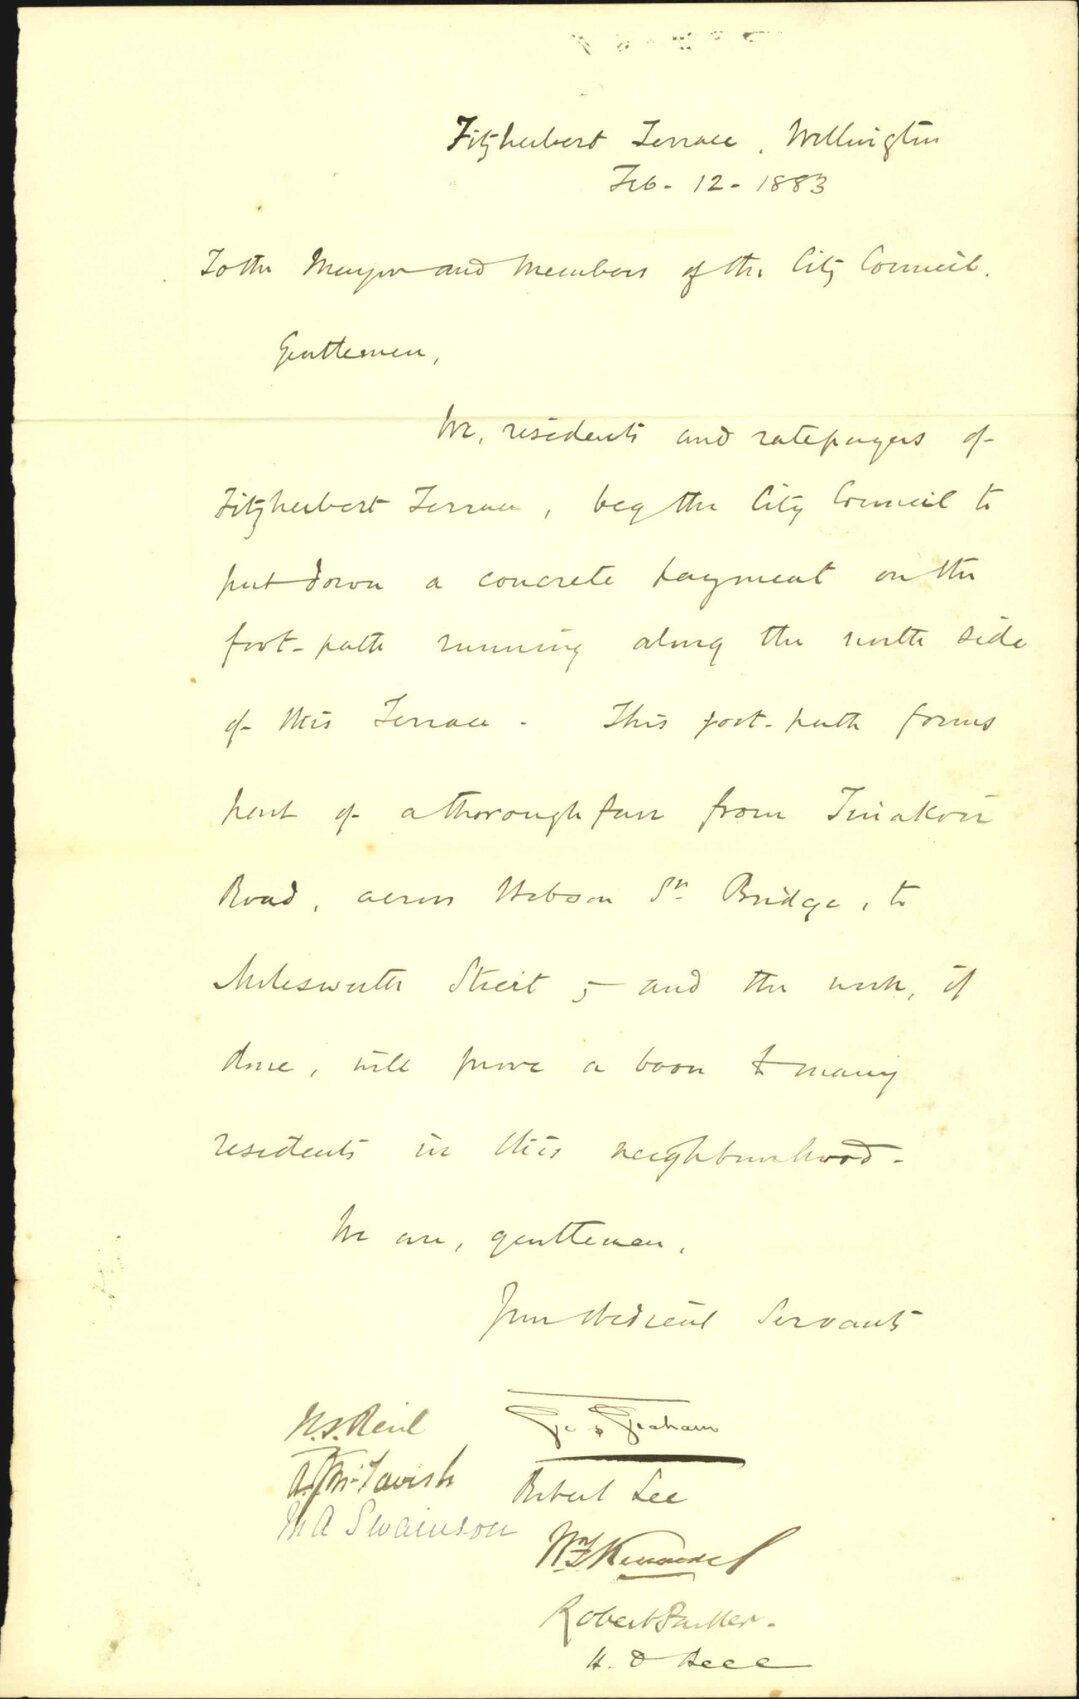 Fitzherbert Terrace, Wellington
Feb. 12 - 1883
To the Mayor and Members of the City Council.
Gentlemen,
We, residents and ratepayers of
Fitzherbert Terrace, beg the City Council to
put down a concrete payment on the
foot-path running along the north side
of this Terrace. This foot-path forms
part of a thoroughfare from Tinakori
Road, across Hobson St. Bridge, to
Molesworth Street; and the work, if
done, will prove a boon to many
residents in this neighbourhood.
We are, gentlemen,
Your obedient Servants
Geo Graham
A. McTavish
Robert Lee
M A Swainson
Robert Parker.
H. D